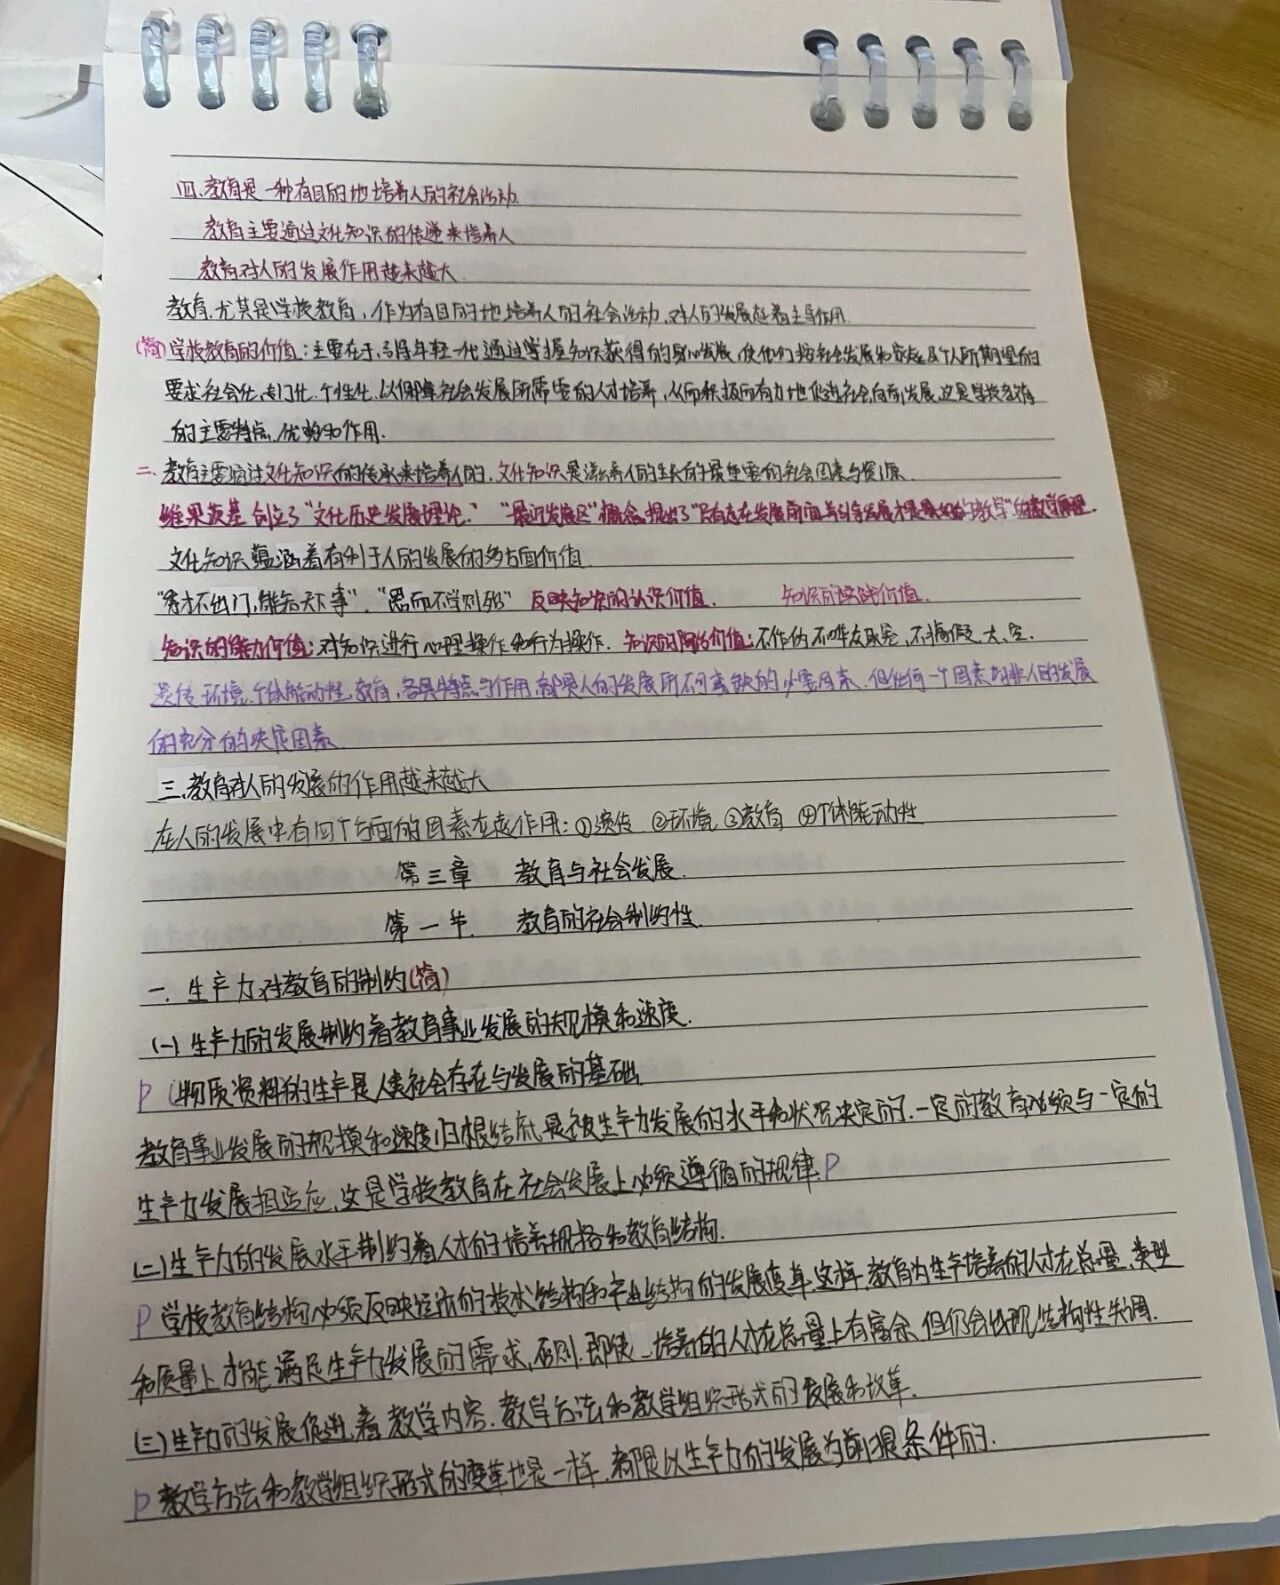 四、教育是一种有目的地培养人的社会活动
教育主要通过文化知识的传递来培养人
教育对人的发展作用越来越大
教育,尤其是学校教育,作为有目的地培养人的社会活动,对人的发展起着主导作用.
(简)学校教育的价值:主要在于,引导年轻一代通过掌握知识获得的身心发展,使他们按社会发展和家庭及个人所期望的
要求社会化,专门化.个性化.以保障社会发展所需要的人才培养,从而积极而有力地促进社会向前发展,这是学校教育
的主要特点,优势和作用.
二.教育主要通过文化知识的传承来培养人的.文化知识是滋养人的生长的最重要的社会因素与资源.
维果茨基 创立了“文化历史发展理论.” “最近发展区”概念,提出了“只有走在发展前面并引导发展才是最好的教学”的教学原理.
文化知识蕴涵着有利于人的发展的多方面价值
“秀才不出门,能知天下事”.“思而不学则殆” 反映知识的认识价值. 知识的实践价值.
知识的能力价值:对知识进行心理操作和行为操作. 知识的陶冶价值:不作伪 不哗众取宠,不搞假、大、空.
遗传 环境.个体能动性.教育,各具特点与作用,都是人的发展所不可或缺的必要因素.但任何一个因素均非人的发展
的充分的决定因素
三.教育对人的发展的作用越来越大
在人的发展中有四个方面的因素在起作用:①遗传 ②环境 ③教育 ④个体能动性
第三章 教育与社会发展.
第一节. 教育的社会制约性.
一.生产力对教育的制约(简)
(一)生产力的发展制约着教育事业发展的规模和速度.
P (物质资料的生产是人类社会存在与发展的基础
教育事业发展的规模和速度,归根结底,是被生产力发展的水平和状况决定的.一定的教育必须与一定的
生产力发展相适应,这是学校教育在社会发展上必须遵循的规律.P
(二)生产力的发展水平制约着人才的培养规格和教育结构.
P 学校教育结构必须反映经济的技术结构和产业结构的发展变革.这样,教育为生产培养的人才在总量、类型
和质量上才能满足生产力发展的需求,否则.即使 培养的人才在总量上有富余,但仍会出现结构性失调.
(三)生产力的发展促进着教学内容.教学方法和教学组织形式的发展和改革.
P 教学方法和教学组织形式的变革也是一样,都是以生产力的发展为前提条件的.